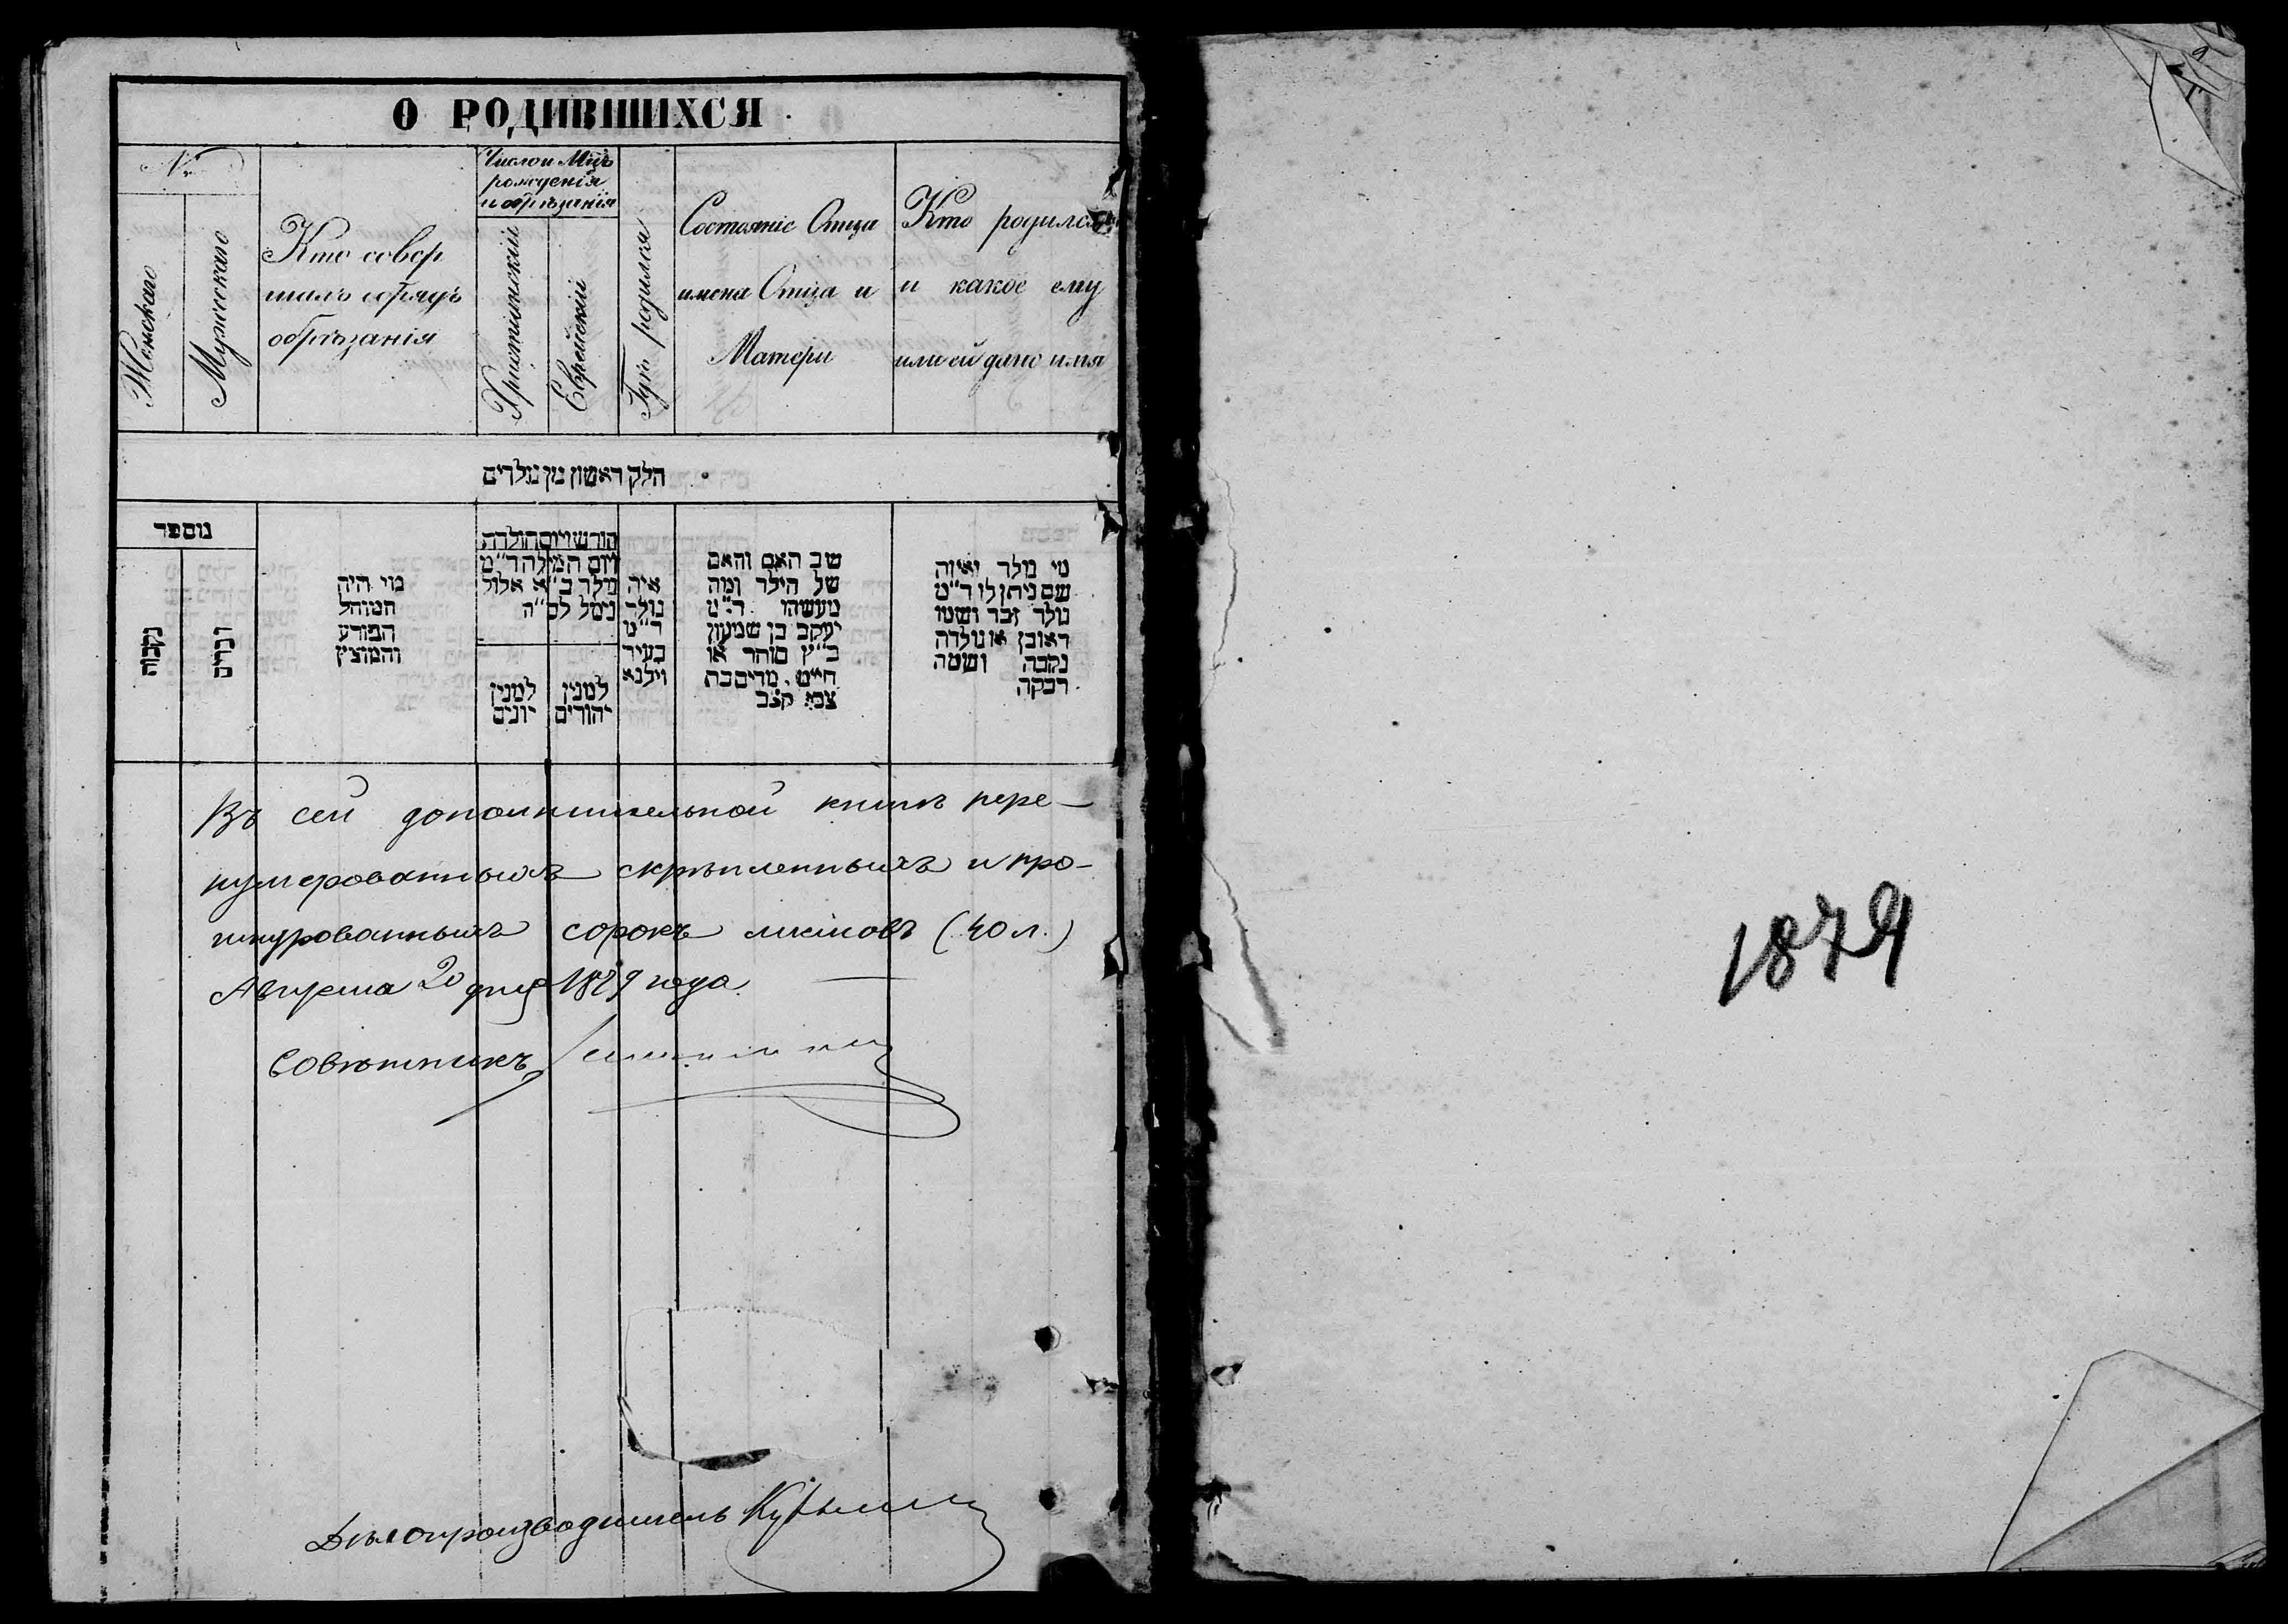 О РОДИВШИХСЯ
№
Женскаго
Мужескаго
Кто совер
шалъ обрядъ
обрѣзанія
Число и Мцъ
рожденія
и обрѣзанія
Христіянскій
Еврейскій
Гдѣ родился
Состояніе Отца
имена Отца и
Матери
Кто родился
и какое ему
или ей дано имя
חלק ראשון מן נולדים
מספר
נקבות
זכרים
מי היה
המוהל
הפורע
והמוצץ
חודש ויום הולדה
ויום המילה ד״מ
נולד ב״א אלול
נימל לס״ה
למנין
יונים
למנין
יהודים
איה
נולד
ד״מ
בעיר
ווילנא
שב האב והאם
של הילד ומה
מעשהו ד״מ
יעקב בן שמעון
כ״ץ סוחר או
חייט. מרים בת
צבי קצב
מי נולד ואיזה
שם ניתן לו ד״מ
נולד זכר ושמו
ראובן או נולדה
נקבה ושמה
רבקה
Въ сей дополнительной книгѣ пере-
нумерованныхъ скрѣпленныхъ и про-
шнурованныхъ сорокъ листовъ (40 л.)
Августа 20 дня 1879 года
Совѣтникъ
Дѣлопроизводитель
1879